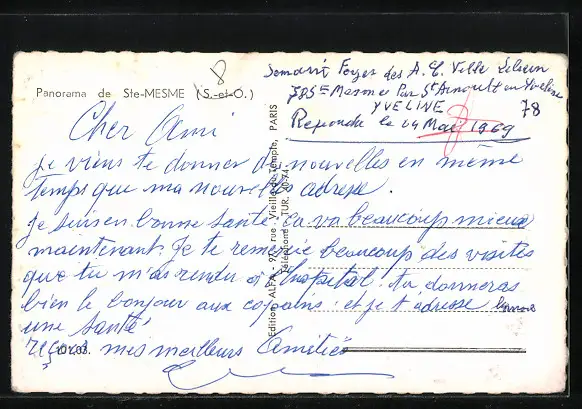 Panorama de Ste-MESME (S.-et-O.)
8
78
YVELINE
Reponde le 04 Mai 1969
Cher Ami
je viens te donner de nouvelles en même
temps que ma nouvelles adresse.
Je suis en bonne santé ça va beaucoup mieux
maintenant. Je te remercie beaucoup des visites
que tu m'as rendu à l'hopital. tu donneras
bien le bonjour aux copains et je t'adresse
une santé
reçois mes meilleurs Amitiés
101.03.
Edition ALFA, 97, rue Vieille-du-Temple, PARIS
Téléphone : TUR.